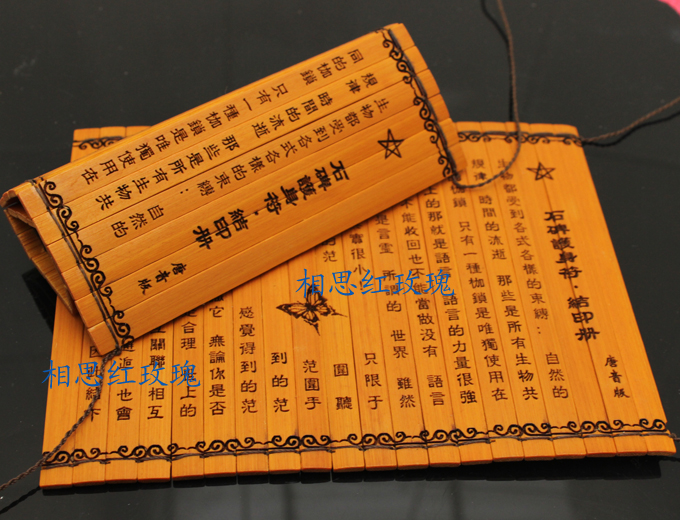 石碑護身符·結印册
生物都受到各式各樣的束縛： 自然的
規律 時間的流逝 那些是所有生物共
同的枷鎖 只有一種枷鎖是唯獨使用在
石碑護身符·結印册
生物都受到各式各樣的束縛： 自然的
規律 時間的流逝 那些是所有生物共
枷鎖 只有一種枷鎖是唯獨使用在
的那就是語言 語言的力量很強
能收回也不能當做没有 語言
是言靈 所謂的 世界 雖然
實很小 只限于
的范 圍 聽
范圍手
到的范
感覺得到的范
它 無論你是否
合理 上的
關聯 相互
也會
相思红玫瑰
相思红玫瑰